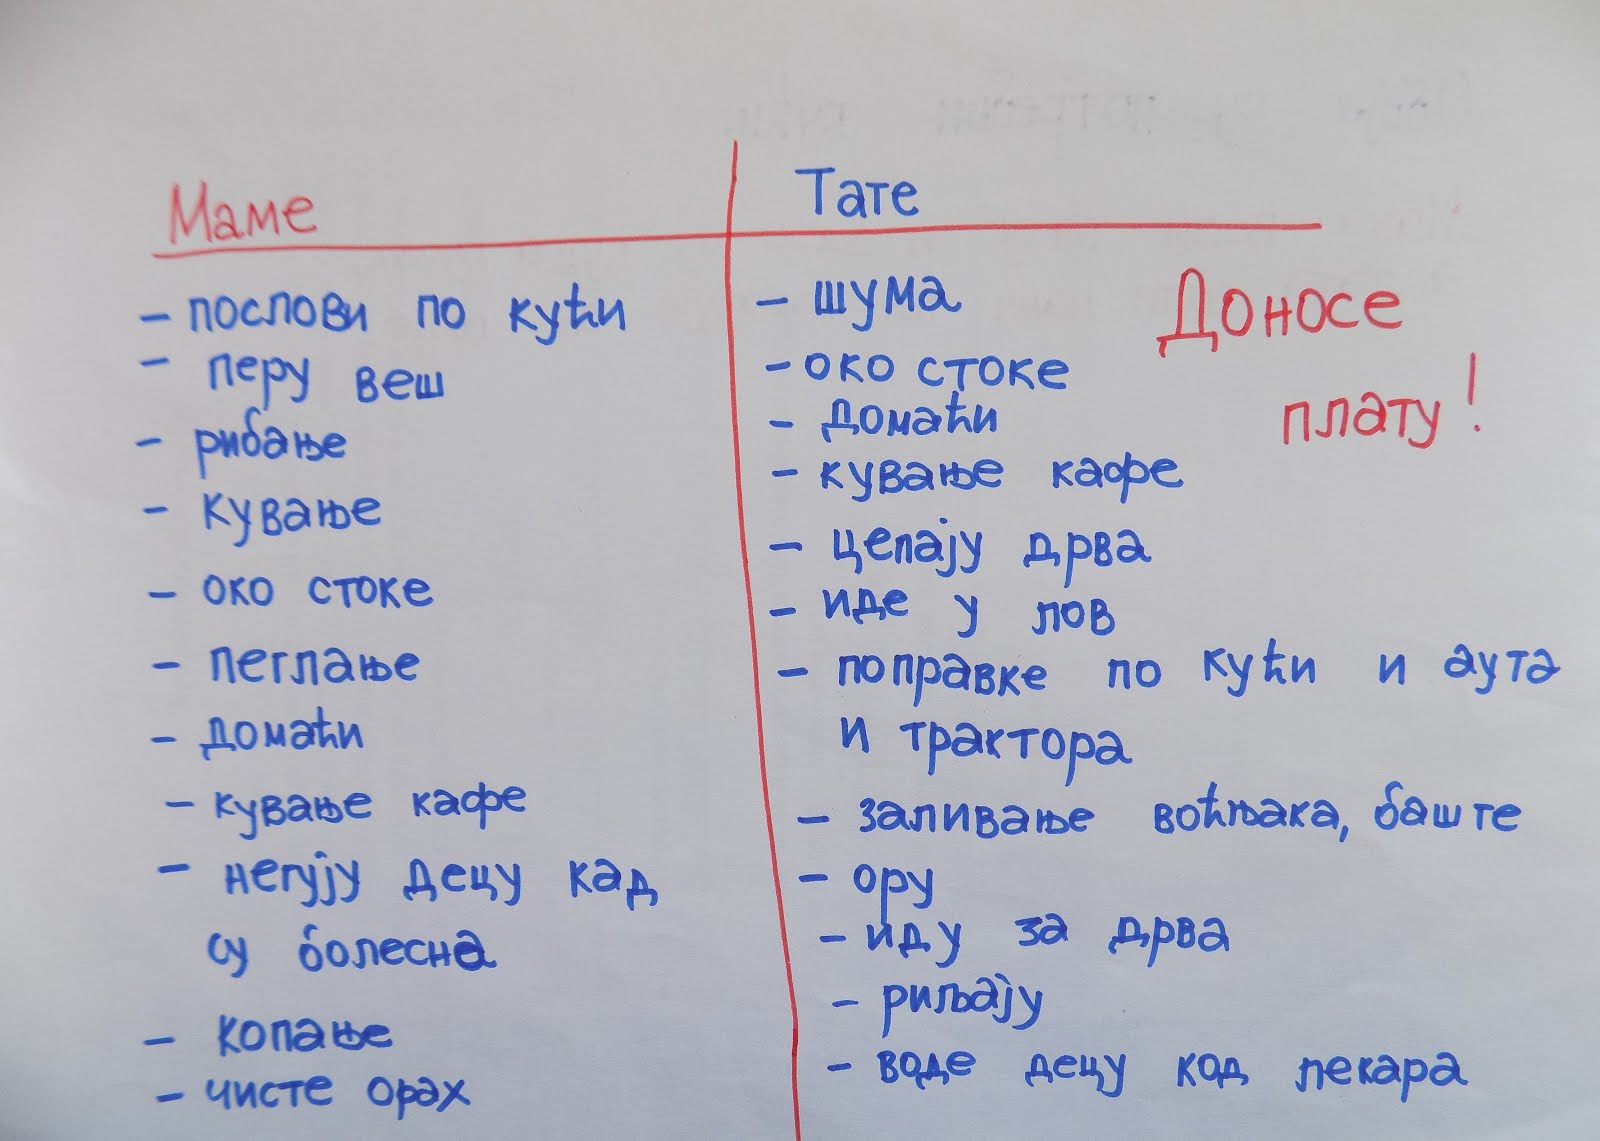 Маме
- послови по кући
- перу веш
- рибање
- кување
- око стоке
- пеглање
- домаћи
- кување кафе
- негују децу кад
су болесна
- копање
- чисте орах
Тате
- шума
- око стоке
- домаћи
- кување кафе
- цепају дрва
- иде у лов
- поправке по кући и аута
и трактора
- заливање воћњака, баште
- ору
- иду за дрва
- риљају
- воде децу код лекара
Доносе
плату!